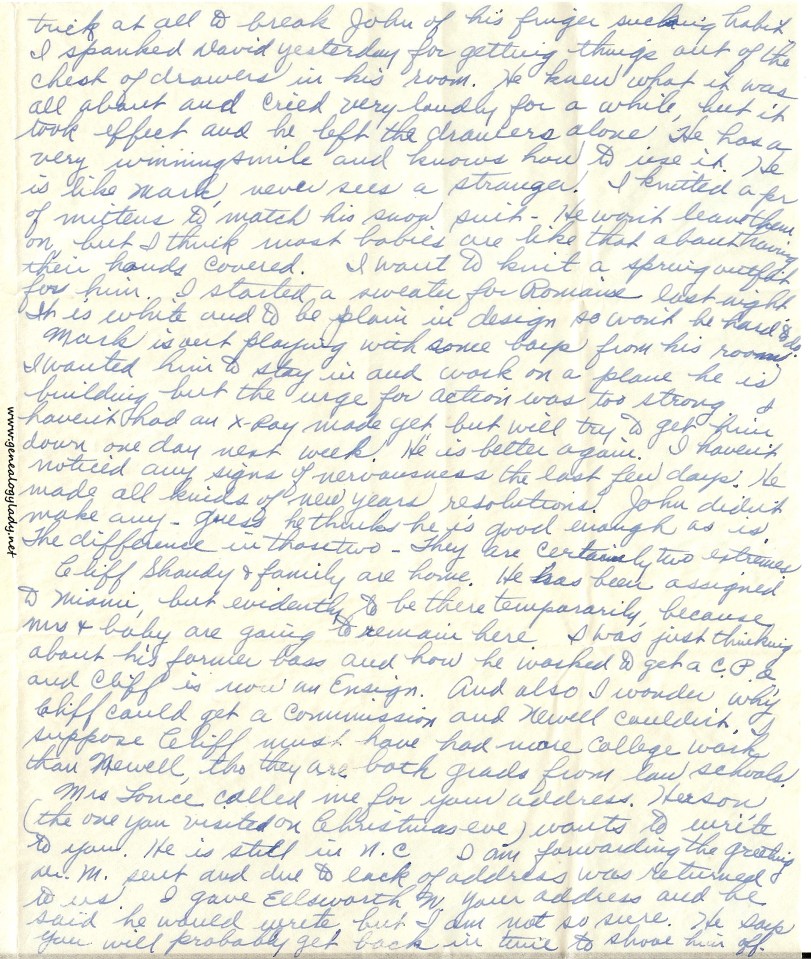 trick at all to break John of his finger sucking habit
I spanked David yesterday for getting things out of the
chest of drawers in his room. He knew what it was
all about and cried very loudly for a while, but it
took effect and he left the drawers alone. He has a
very winning smile and knows how to use it. He
is like Mark, never sees a stranger. I knitted a pr
of mittens to match his snow suit - He won't leave them
on, but I think most babies are like that about having
their hands covered. I want to knit a spring outfit
for him. I started a sweater for Romaine last night
It is white and to be plain in design so won't be hard to do.
Mark is out playing with some boys from his room.
I wanted him to stay in and work on a plane he is
building but the urge for action was too strong. I
haven't had an X-Ray made yet but will try to get him
down one day next week. He is better again. I haven't
noticed any signs of nervousness the last few days. He
made all kinds of new years resolutions. John didn't
make any - guess he thinks he is good enough as is.
The difference in those two - They are certainly two extremes
Cliff Shandy & family are home. He has been assigned
to Miami, but evidently to be there temporarily, because
Mrs & baby are going to remain here. I was just thinking
about his former boss and how he worked to get a C.P.O
and Cliff is now an Ensign. And also I wonder why
Cliff could get a commission and Newell couldn't. I
suppose Cliff must have had more college work
than Newell, tho they are both grads from law schools.
Mrs Tonce called me for your address. Her son
(the one you visited on Christmas eve) wants to write
to you. He is still in N.C. I am forwarding the greeting
W. M. sent and due to lack of address was returned
to us. I gave Ellsworth N your address and he
said he would write but I am not so sure. He says
you will probably get back in time to shove him off.
www.genealogylady.net